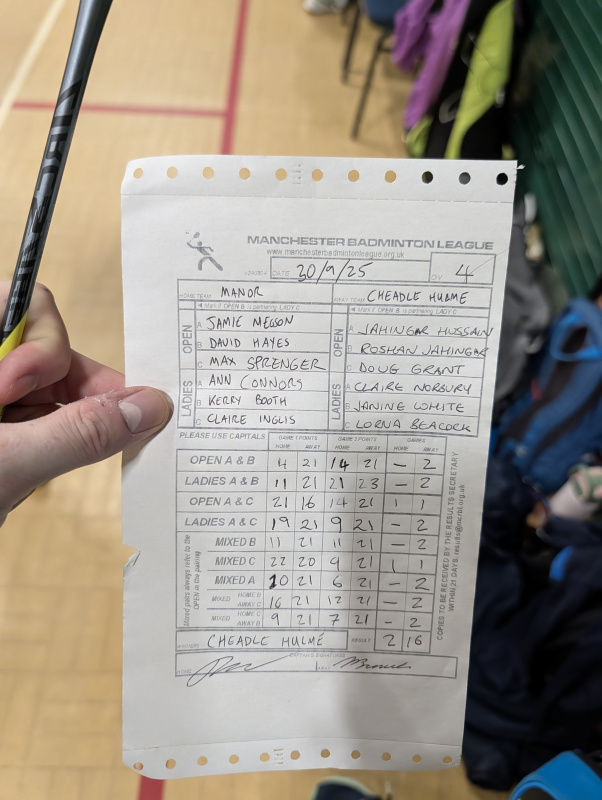 MANCHESTER BADMINTON LEAGUE
www.manchesterbadmintonleague.org.uk
DATE 30/9/25 DIV 4
HOME TEAM MANOR AWAY TEAM CHEADLE HULME
Mark if OPEN B is partnering LADY C Mark if OPEN B is partnering LADY C
OPEN A JAMIE MEGSON OPEN A JAHINGAR HUSSAIN
B DAVID HAYES B ROSHAN JAHINGAR
C MAX SPRENGER C DOUG GRANT
LADIES A ANN CONNORS LADIES A CLAIRE NORBURY
B KERRY BOOTH B JANINE WHITE
C CLAIRE INGLIS C LORNA BEACOCK
PLEASE USE CAPITALS GAME 1 POINTS GAME 2 POINTS GAMES
HOME AWAY HOME AWAY HOME AWAY
OPEN A & B 4 21 14 21 – 2
LADIES A & B 11 21 21 23 – 2
OPEN A & C 21 16 14 21 1 1
LADIES A & C 19 21 9 21 – 2
MIXED B 11 21 11 21 – 2
MIXED C 22 20 9 21 1 1
MIXED A 10 21 6 21 – 2
MIXED HOME B AWAY C 16 21 12 21 – 2
MIXED HOME C AWAY B 9 21 7 21 – 2
Mixed pairs always refer to the OPEN in the pairing
COPIES TO BE RECEIVED BY THE RESULTS SECRETARY
WITHIN 21 DAYS.
WINNERS CHEADLE HULME RESULT 2 16
CAPTAIN'S SIGNATURES
HOME AWAY